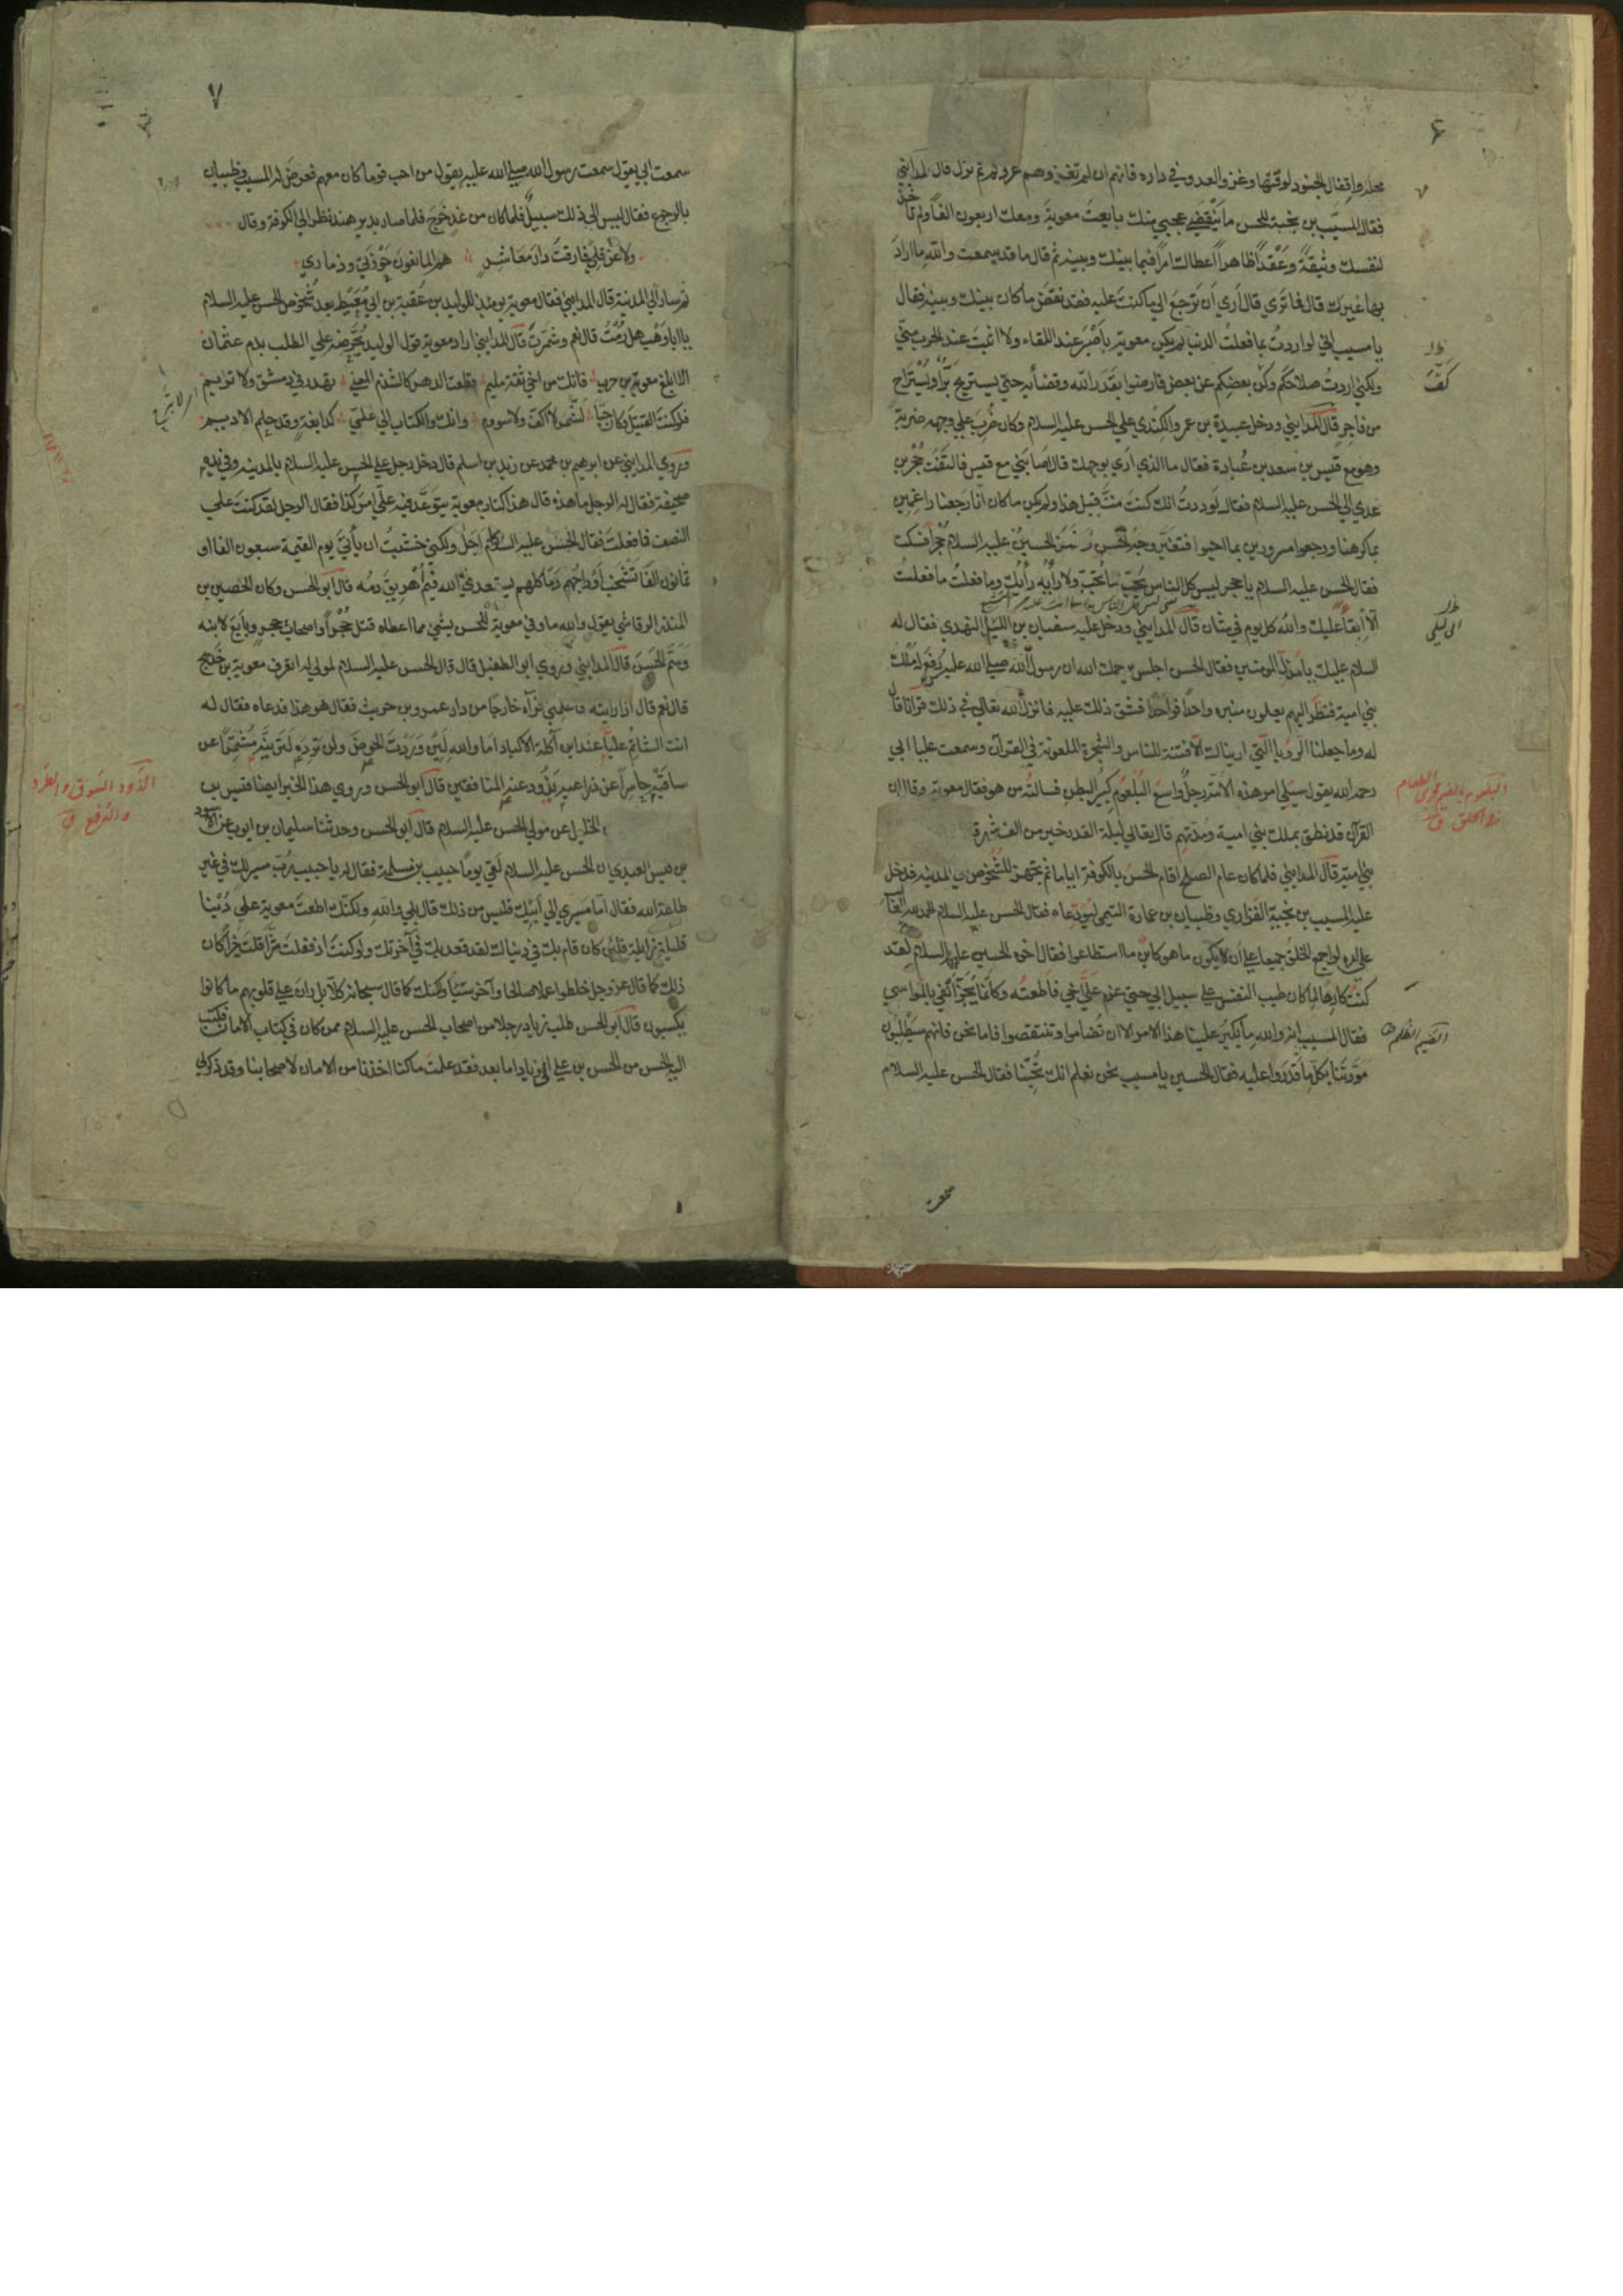 ۶
محلها واقفال الجنود لوقتها وغزو العدو في داره فانهم ان لم تغزوهم غزوكم ثم نزل قال المدايني
فقال المسيب بن نجبة للحسن ما ينقضي عجبي منك بايعت معوية ومعك اربعون الفا ولم تاخذ
لنفسك وثيقة وعقدا ظاهرا اعطاك امرا فيما بينك وبينه ثم قال ما قد سمعت والله ما اراد
بها غيرك قال فما ترى قال ارى ان ترجع الى ما كنت عليه فقد نقض ما كان بينك وبينه فقال
يا مسيب اني لو اردت بما فعلت الدنيا لم يكن معوية باصبر عند اللقاء ولا اثبت عند الحرب مني
ولكني اردت صلاحكم وكف بعضكم عن بعض فارضوا بقدر الله وقضائه حتى يستريح بر او يستراح
من فاجر قال المدايني ودخل عبيدة بن عمرو الكندي على الحسن عليه السلام وكان ضرب على وجهه ضربة
وهو مع قيس بن سعد بن عبادة فقال ما الذي ارى بوجهك قال اصابني مع قيس فالتفت حجر بن
عدي الى الحسن عليه السلام فقال لوددت انك كنت مت قبل هذا ولم يكن ما كان انا رجعنا راغمين
بما كرهنا ورجعوا مسرورين بما احبوا فتغير وجه الحسن وغمز الحسين عليه السلام حجرا فسكت
فقال الحسن عليه السلام يا حجر ليس كل الناس يحب ما تحب ولا رايه رايك وما فعلت ما فعلت
الا ابقاء عليك والله كل يوم في شان قال المدايني ودخل عليه سفيان بن الليل النهدي فقال له
السلام عليك يا مذل المومنين فقال الحسن اجلس يرحمك الله ان رسول الله صلى الله عليه رفع له ملك
بني امية فنظر اليهم يعلون منبره واحدا فواحدا فشق ذلك عليه فانزل الله تعالى في ذلك قرآنا قال
له وما جعلنا الرويا التي اريناك الا فتنة للناس والشجرة الملعونة في القرآن وسمعت عليا ابي
رحمه الله يقول سيلي امر هذه الامة رجل واسع البلعوم كبير البطن فسالته من هو فقال معوية وقال ان
القرآن قد نطق بملك بني امية ومدتهم قال تعالى ليلة القدر خير من الف شهر
بني امية قال المدايني فلما كان عام الصلح اقام الحسن بالكوفة اياما ثم تجهز للشخوص الى المدينة فدخل
عليه المسيب بن نجبة الفزاري وظبيان بن عمارة التيمي ليودعاه فقال الحسن عليه السلام الحمد لله الغالب
على امره لو اجمع الخلق جميعا على ان لا يكون ما هو كاين ما استطاعوا فقال اخوه الحسين عليه السلام لقد
كنت كارها لما كان طيب النفس على سبيل ابي حتى عزم علي اخي فاطعته وكانما يجز انفي بالمواسي
فقال المسيب انه والله ما يكبر علينا هذا الامر الا ان تضاموا وتنتقصوا فاما نحن فانهم سيطلبون
مودتنا بكل ما قدروا عليه فقال الحسين يا مسيب نحن نعلم انك تحبنا فقال الحسن عليه السلام
سمعت
كف
البلعوم بالضم مجرى الطعام
في الحلق ق
الضيم الظلم
۷
سمعت ابي يقول سمعت رسول الله صلى الله عليه يقول من احب قوما كان معهم فعرض له المسيب وظبيان
بالرجوع فقال ليس الى ذلك سبيل فلما كان من غد خرج فلما صار بدير هند نظر الى الكوفة وقال
ولا عن قلى فارقت دار معاشر هم المانعون حوزتي وذماري
ثم سار الى المدينة قال المدايني فقال معوية يومئذ للوليد بن عقبة بن ابي معيط بعد شخوص الحسن عليه السلام
يا ابا وهب هل رمت قال نعم وشمرت قال المدايني اراد معوية قول الوليد يحرضه على الطلب بدم عثمان
الا ابلغ معوية بن حرب فانك من اخي ثقة مليم قطعت الدهر كالسدم المعنى تهدر في دمشق ولا تريم
فلو كنت القتيل وكان حيا لشمر لا الف ولا سووم وانك والكتاب الى علي كدابغة وقد حلم الاديم
وروى المدايني عن ابرهيم بن محمد عن زيد بن اسلم قال دخل رجل على الحسن عليه السلام بالمدينة وفي يده
صحيفة فقال له الرجل ما هذه قال هذا كتاب معوية يتوعد فيه على امر كذا فقال الرجل لقد كنت على
النصف فما فعلت فقال الحسن عليه السلام اجل ولكني خشيت ان ياتي يوم القيمة سبعون الفا او
ثمانون الفا تشخب اوداجهم دما كلهم يستعدي الله فيم اهريق دمه قال ابو الحسن وكان الحصين بن
المنذر الرقاشي يقول والله ما وفى معوية للحسن بشي مما اعطاه قتل حجرا واصحاب حجر وبايع لابنه
وسم الحسن قال المدايني وروى ابو الطفيل قال قال الحسن عليه السلام لمولى له اتعرف معوية بن خديج
قال نعم قال اذا رايته فاعلمني فرآه خارجا من دار عمرو بن حريث فقال هو هذا فدعاه فقال له
انت الشاتم عليا عند ابن آكلة الاكباد اما والله لئن وردت الحوض ولن ترده لترينه مشمرا عن
ساقيه حاسرا عن ذراعيه يذود عنه المنافقين قال ابو الحسن وروى هذا الخبر ايضا قيس بن
الربيع عن مولى الحسن عليه السلام قال ابو الحسن وحدثنا سليمان بن ايوب عن الاسود
بن قيس العبدي ان الحسن عليه السلام لقي يوما حبيب بن مسلمة فقال له يا حبيب رب مسير لك في غير
طاعة الله فقال اما مسيري الى ابيك فليس من ذلك قال بلى والله ولكنك اطعت معوية على دنيا
قليلة زايلة فلئن كان قام بك في دنياك لقد قعد بك في آخرتك ولو كنت اذ فعلت شرا قلت خيرا كان
ذلك كما قال عز وجل خلطوا عملا صالحا وآخر سيئا ولكنك كما قال سبحانه كلا بل ران على قلوبهم ما كانوا
يكسبون قال ابو الحسن طلب زياد رجلا من اصحاب الحسن عليه السلام ممن كان في كتاب الامان فكتب
اليه الحسن من الحسن بن علي الى زياد اما بعد فقد علمت ما كنا اخذنا من الامان لاصحابنا وقد ذكر لي
الذود السوق والطرد
والدفع ق